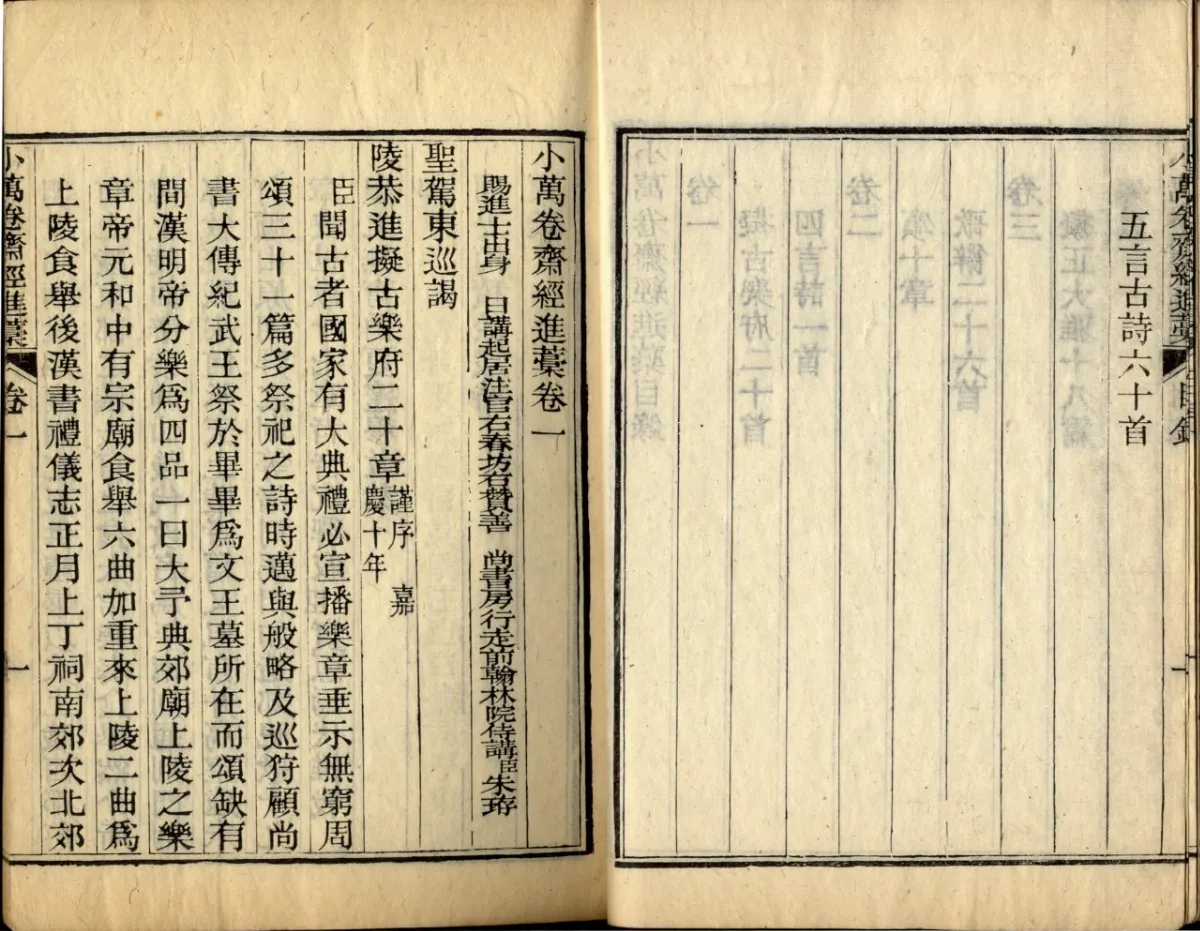 五言古詩六十首
小萬卷齋經進藁 目錄
一
小萬卷齋經進藁卷一
賜進士出身 日講起居注官右春坊右贊善 尚書房行走前翰林院侍講臣朱珔
聖駕東巡謁
陵恭進擬古樂府二十章謹序 嘉慶十年
臣聞古者國家有大典禮必宣播樂章垂示無窮周
頌三十一篇多祭祀之詩時邁與般略及巡狩顧尚
書大傳紀武王祭於畢畢爲文王墓所在而頌缺有
間漢明帝分樂爲四品一曰大予典郊廟上陵之樂
章帝元和中有宗廟食舉六曲加重來上陵二曲爲
上陵食舉後漢書禮儀志正月上丁祠南郊次北郊
小萬卷齋經進藁 卷一
一